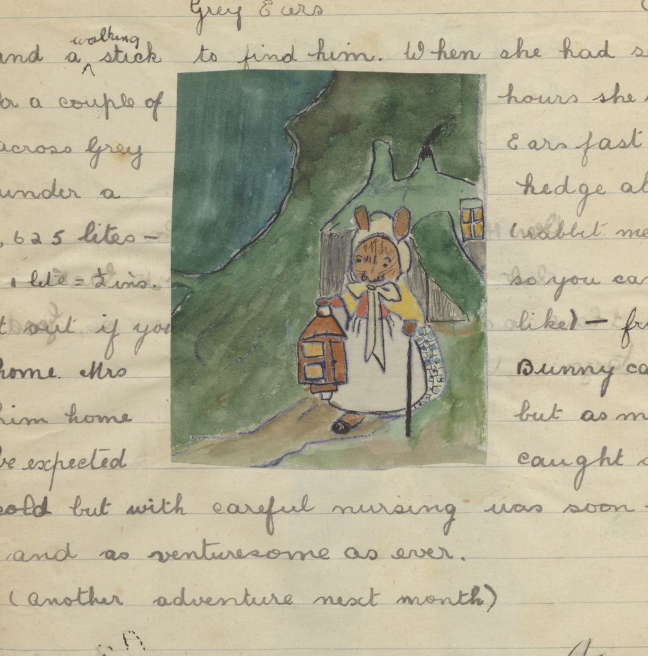 Grey Ears
walking
and a stick to find him. When she had s
or a couple of hours she
across Grey Ears fast
under a hedge ab
,625 lites - (rabbit me
1 lite = ½ ins. so you ca
t out if you like) - fr
home. Mrs Bunny ca
him home but as m
be expected caught
cold but with careful nursing was soon
and as venturesome as ever.
(another adventure next month)